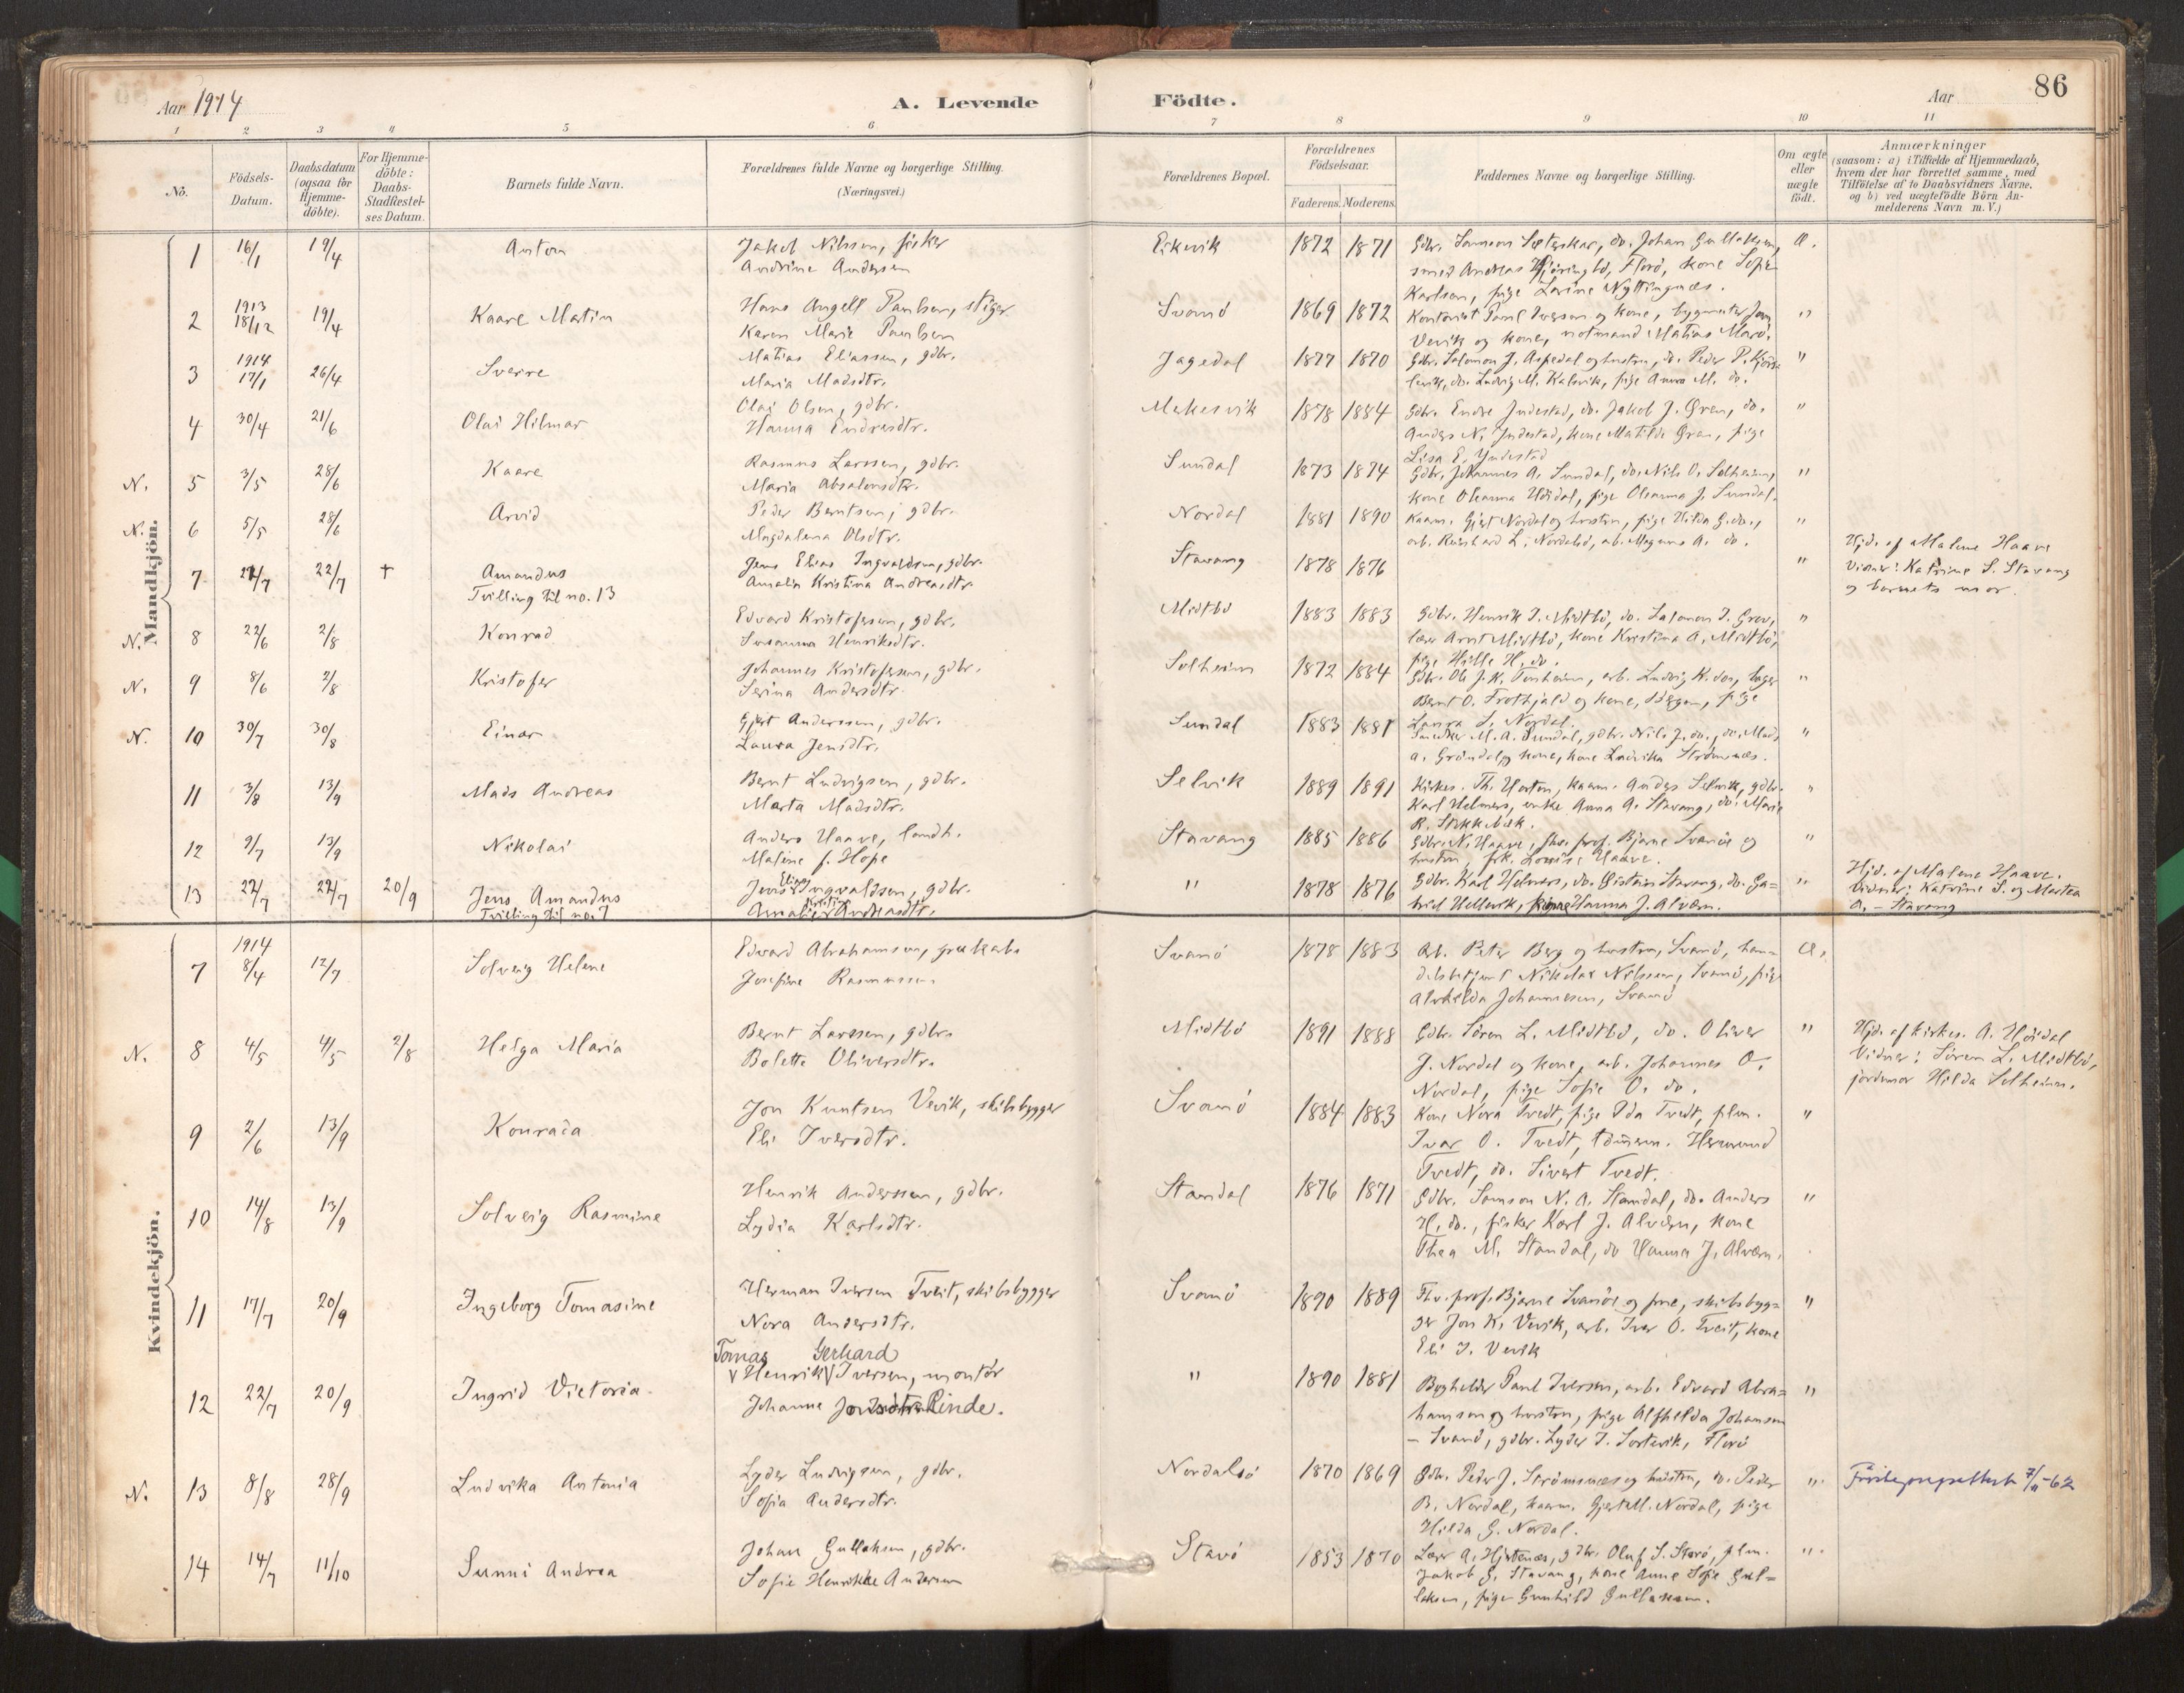 Aar 1914
A. Levende Födte.
Aar
86
1 2 3 4 5 6 7 8 9 10 11
No.
Födsels-Datum.
Daabsdatum (ogsaa for Hjemme-döbte).
For Hjemme-döbte: Daabs-Stadfæstel-ses Datum.
Barnets fulde Navn.
Forældrenes fulde Navne og borgerlige Stilling. (Næringsvei.)
Forældrenes Bopæl.
Forældrenes Födselsaar.
Faderens. Moderens.
Faddernes Navne og borgerlige Stilling.
Om ægte eller uægte födt.
Anmærkninger
(saasom: a) i Tilfælde af Hjemmedaab,
hvem der har forrettet samme, med
Tilföielse af to Daabsvidners Navne,
og b) ved uægtefödte Börn An-
melderens Navn m. V.)
Mandkjön.
1 16/1 19/4 Anton Jakob Nilssen, fisker Eikevik 1872 1871 Gdbr. Samson Sæterskar, do. Johan Gullaksen, Æ.
Andrine Andersen smed Andreas Florö, kone Sofie
Karlsen, pige Lovine Nyttingnæs.
1913
2 18/12 19/4 Kaare Martin Hans Angell Paulsen, stiger Svanö 1869 1872 Kontorist Paul Iversen og kone, bygmester Jon "
Karen Marie Paulsen Vevik og kone, notmand Matias Marö.
1914
3 17/1 26/4 Sverre Matias Eliassen, gdbr. Jagedal 1877 1870 Gdbr. Salomon J. Aspedal og hustru, do. Peder P. "
Maria Madsdtr. do. Ludvig M. Kalsvik, pige Anna M. do.
4 30/4 21/6 Olai Hilmar Olai Olsen, gdbr. Mekesvik 1878 1884 Gdbr. Endre Indestad, do. Jakob J. Øren, do. "
Hanna Endresdtr. Anders N. Indestad, kone Matilde Øren, pige
Lisa E. Yndestad
N. 5 3/5 28/6 Kaare Rasmus Larssen, gdbr. Sundal 1873 1874 Gdbr. Johannes A. Sundal, do. Nils O. Solheim, "
Maria Absalonsdtr. kone Oleanna Ud­dal, pige Oleanna J. Sundal.
N. 6 5/5 28/6 Arvid Peder Berntsen, gdbr. Nordal 1881 1890 Kaarm. Gjert Nordal og hustru, pige Hilda G. do., "
Magdalena Olsdtr. arb. L. Nordalsö, arb. Magnus A. do.
7 22/7 22/7 † Amandus Jens Elias Ingvaldsen, gdbr. Stavang 1878 1876 " Hjd. af Malene Haave
Tvilling til no. 13 Amalia Kristina Andreasdtr. Vidner: Katrine S. Stavang
og barnets mor.
N. 8 22/6 2/8 Konrad Edvard Kristofersen, gdbr. Midtbö 1883 1883 Gdbr. Henrik I. Midtbö, do. Salamon I. Grov, "
Susanna Henriksdtr. lærer Arnt Midtbö, kone Kristina A. Midtbö,
pige Hille H. do.
N. 9 8/6 2/8 Kristofer Johannes Kristofersen, gdbr. Solheim 1872 1884 Gdbr. Ole J. K. Torsheim, arb. Ludvig K. do., "
Serina Andersdtr. Bernt O. og kone, pige
Laura S. Nordal.
N. 10 30/7 30/8 Einar Gjert Anderssen, gdbr. Sundal 1883 1881 M. A. Sundal, gdbr. Nils J. do., do. Mads "
Laura Jensdtr. A. Gröndal og kone, kone Ludvika Strömsnæs.
11 3/8 13/9 Mads Andreas Bernt Ludvigsen, gdbr. Selvik 1889 1891 Kirkes. Th. Horton, kaarm. Anders Selvik, gdbr. "
Marta Madsdtr. Karl Helmers, enke Anna A. Stavang, do. Marie
R. Stokkebæk.
12 9/7 13/9 Nikolai Anders Haave, landh. Stavang 1885 1886 Gdbr. N. Haave, fhv. prof. Bjarne Svanöe og "
Malene f. Hope hustru, frk. Lovise Haave.
13 22/7 22/7 20/9 Jens Amandus Jens Elias Ingvaldsen, gdbr. " 1878 1876 Gdbr. Karl Helmers, do. Öistein Stavang, do. Ga- " Hjd. af Malene Haave.
Tvilling til no. 7 Amalia Kristine Andreasdtr. briel Hellevik, pige Hanna J. Alværn. Vidner: Katrine S. og Martea
A. – Stavang
Kvindekjön.
1914
7 8/4 12/7 Solveig Helene Edvard Abrahamsen, Svanö 1878 1883 Arb. Peter Berg og hustru, Svanö, han- Æ.
Josefine Rasmussen delsbetjent Nikolai Nilssen, Svanö, pige
Alvhelda Johannesen, Svanö
N. 8 4/5 4/5 2/8 Helga Maria Bernt Larssen, gdbr. Midtbö 1891 1888 Gdbr. Sören L. Midtbö, do. Oliver " Hjd. af kirkes. A. Höidal
Bolette Oliversdtr. J. Nordal og kone, arb. Johannes O. Vidner: Sören L. Midtbö,
Nordal, pige Sofie O. do. jordmor Hilda Solheim.
9 2/6 13/9 Konrada Jon Knutsen Vevik, skibsbygger Svanö 1884 1883 Kone Nora Tvedt, pige Ida Tvedt, plm. "
Eli Iversdtr. Ivar O. Tvedt, tömerm. Hermund
Tvedt, do. Sivert Tvedt.
10 14/8 13/9 Solveig Rasmine Henrik Anderssen, gdbr. Standal 1876 1871 Gdbr. Samson N. A. Standal, do. Anders "
Lydia Karlsdtr. H. do., fisker Karl J. Alværn, kone
Thea M. Standal, do Hanna J. Alværn.
11 17/7 20/9 Ingeborg Tomasine Herman Iversen Tveit, skibsbygger Svanö 1890 1889 Fhv. prof. Bjarne Svanöe og frue, skibsbyg- "
Nora Andersdtr. ger Jon K. Vevik, arb. Iver O. Tveit, kone
Eli I. Vevik
Tomas Gerhard
12 22/7 20/9 Ingrid Victoria. Henrik Iversen, montör " 1890 1881 Bogholder Paul Iversen, arb. Edvard Abra- "
Johanne Rinde. hamsen og hustru, pige Alfhelda Johansen
– Svanö, gdbr. Lyder I. Sortevik, Florö
N. 13 8/8 28/9 Ludvika Antonia Lyder Ludvigsen, gdbr. Nordalsö 1870 1869 Gdbr. Peder J. Strömsnæs og hustru, do. Peder " 7/11-62
Sofia Andersdtr. B. Nordal, kaarm. Gjert M. Nordal, pige
Hilda G. Nordal.
14 14/7 11/10 Sunni Andrea Johan Gullaksen, gdbr. Stavö 1853 1870 Lærer A. Hjertenæs, gdbr. Oluf S. Stavö, plm. "
Sofie Henrikke Andersen Jakob G. Stavang, kone Anne Sofie Gul-
laksen, pige Gunhild Gullaksen.